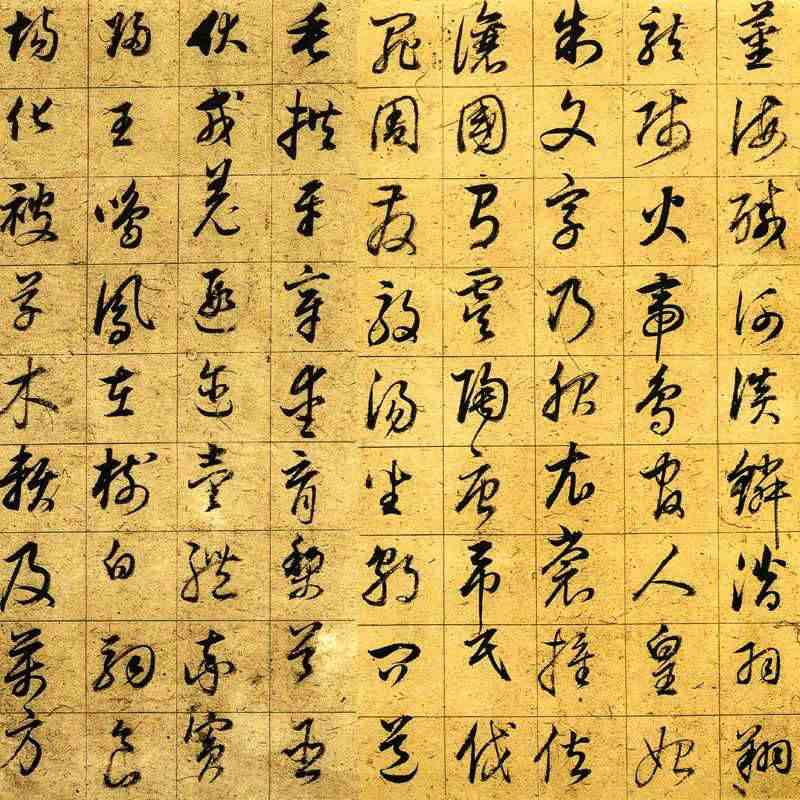 薑海醎河淡鱗潛羽翔
龍師火帝鳥官人皇始
制文字乃服衣裳推位
讓國有虞陶唐弔民伐
罪周發殷湯坐朝問道
垂拱平章愛育黎首臣
伏戎羌遐邇壹體率賓
歸王鳴鳳在樹白駒食
場化被草木賴及萬方